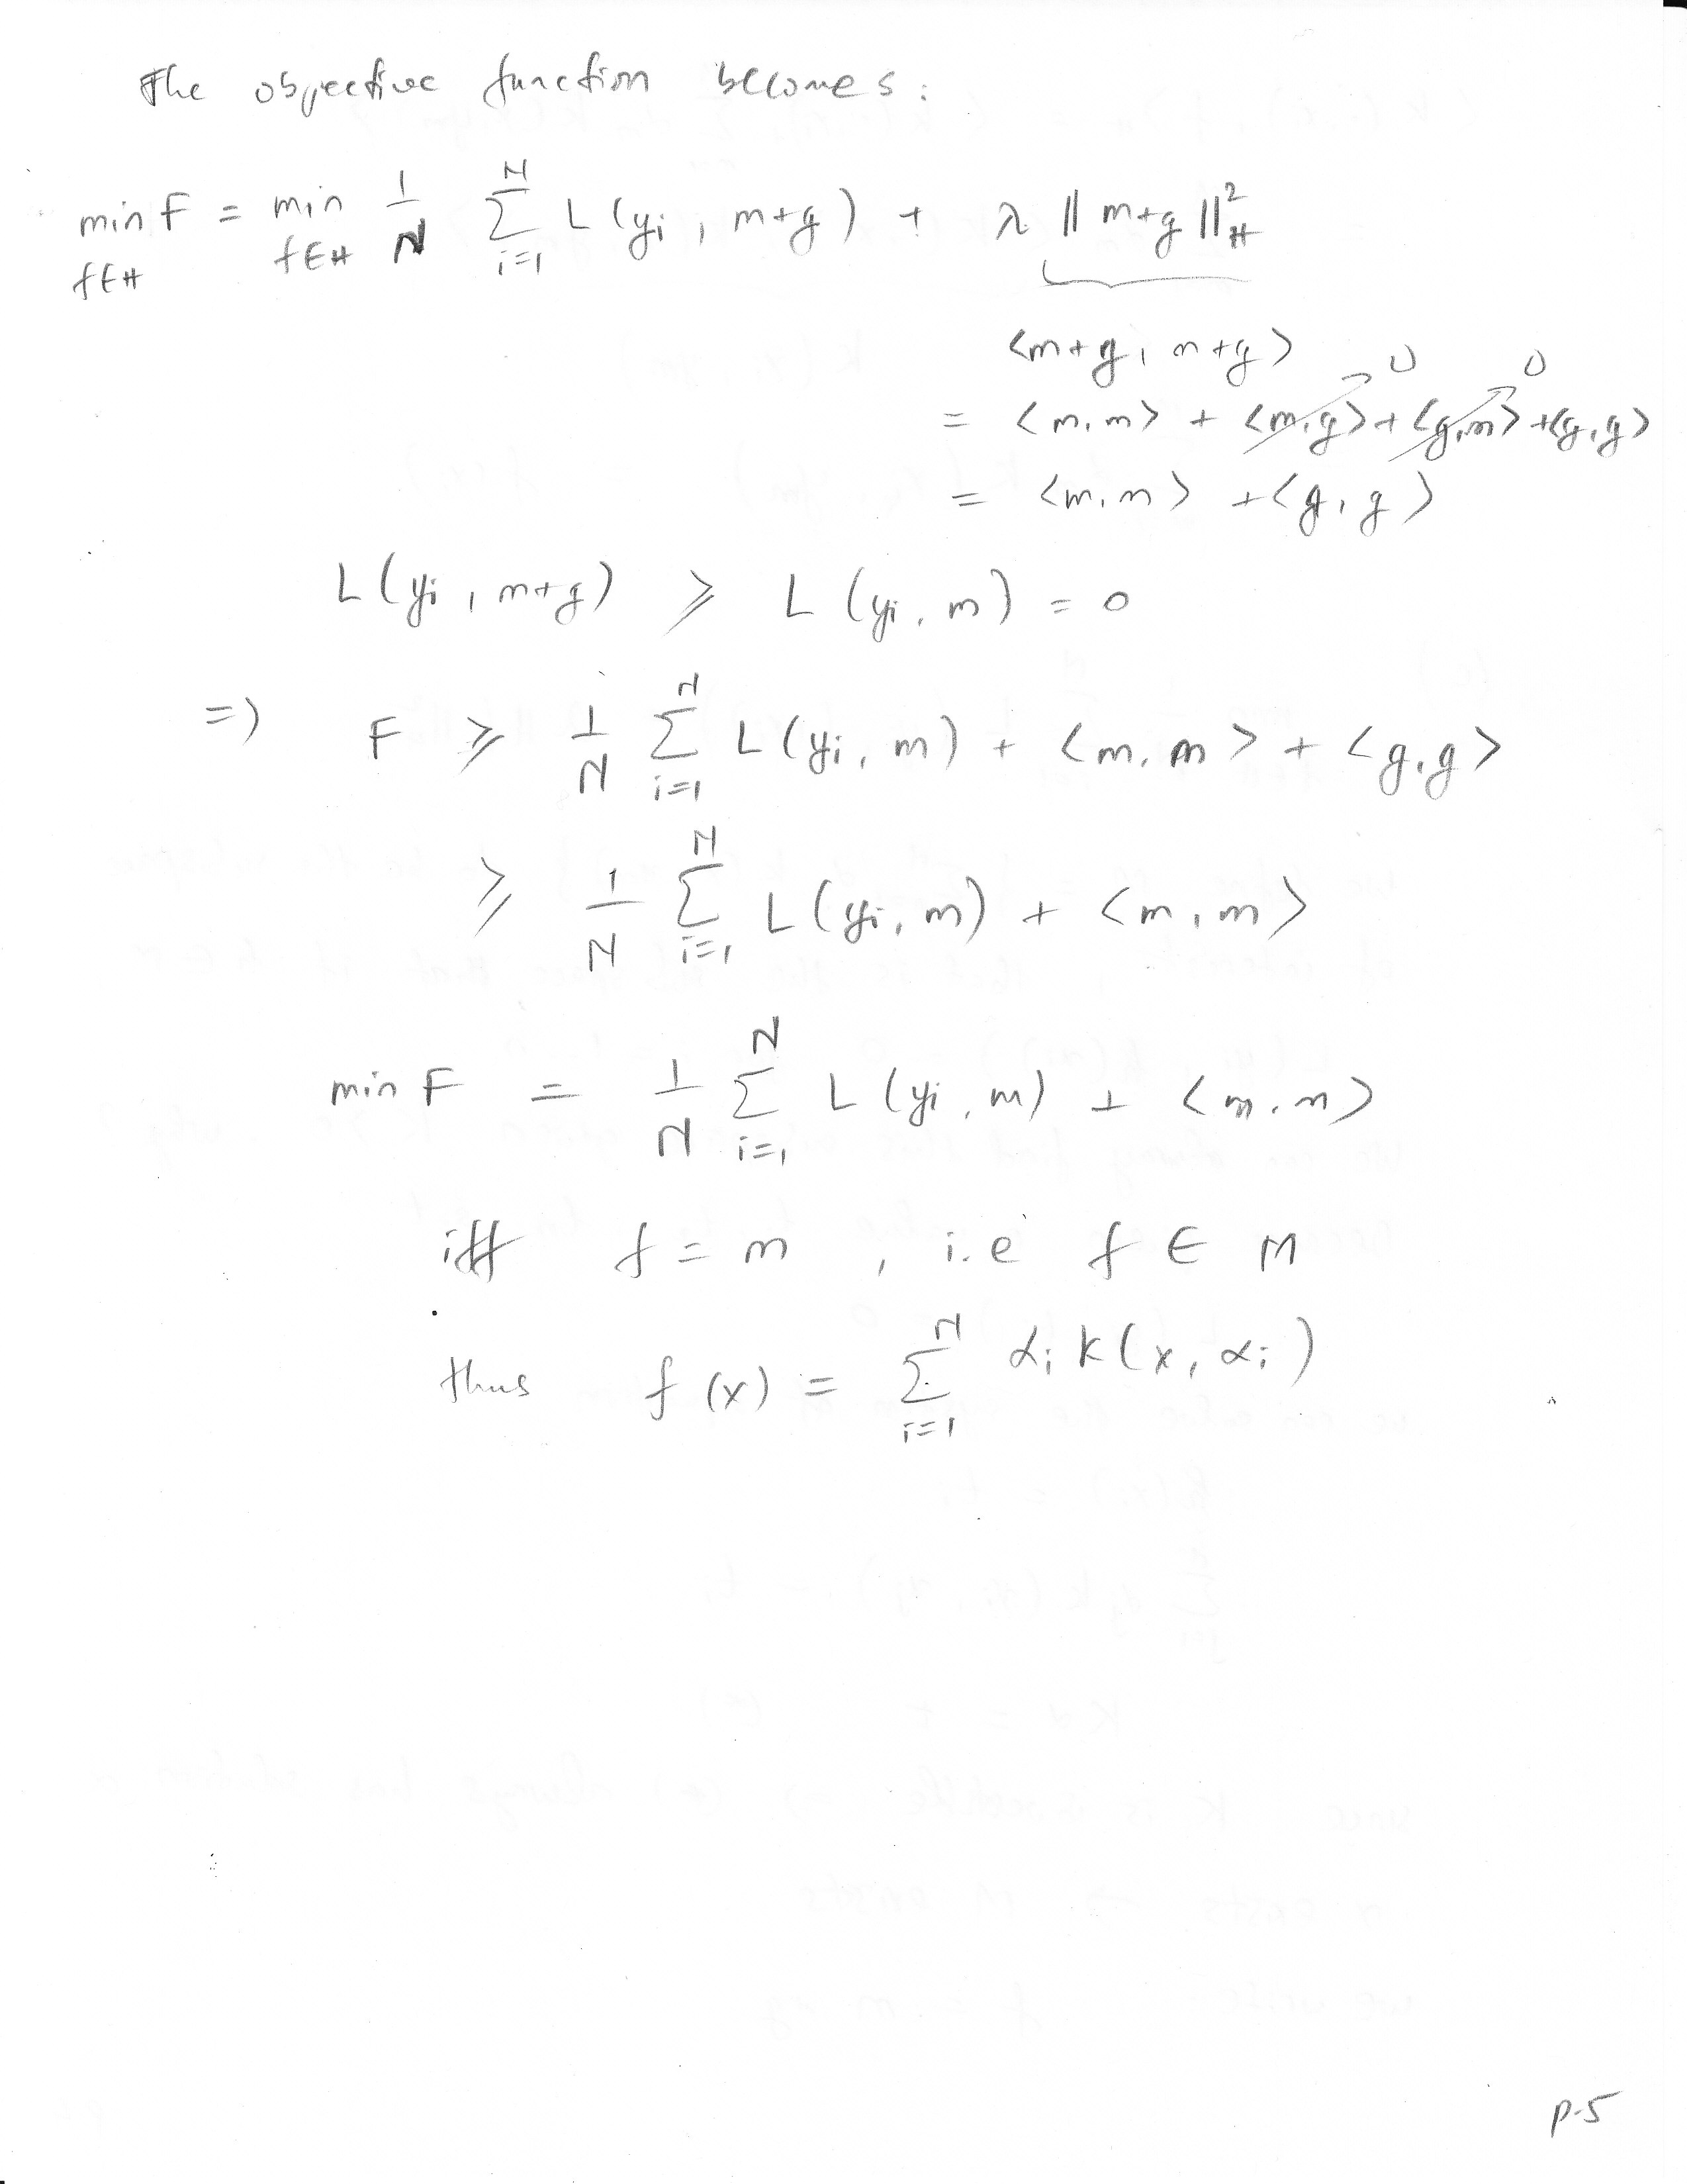 The objective function becomes:
min F = min 1/N Σ_{i=1}^{N} L(yi, m+g) + λ ‖m+g‖²_H
f∈H f∈H
<m+g, m+g>
= <m,m> + <m,g> + <g,m> + <g,g>
0 0
= <m,m> + <g,g>
L(yi, m+g) ⩾ L(yi, m) = 0
=) F ⩾ 1/N Σ_{i=1}^{N} L(yi, m) + <m,m> + <g,g>
⩾ 1/N Σ_{i=1}^{N} L(yi, m) + <m,m>
min F = 1/N Σ_{i=1}^{N} L(yi, m) + <m,m>
iff f = m, i.e f ∈ M
thus f(x) = Σ_{i=1}^{N} α_i k(x, α_i)
p.5